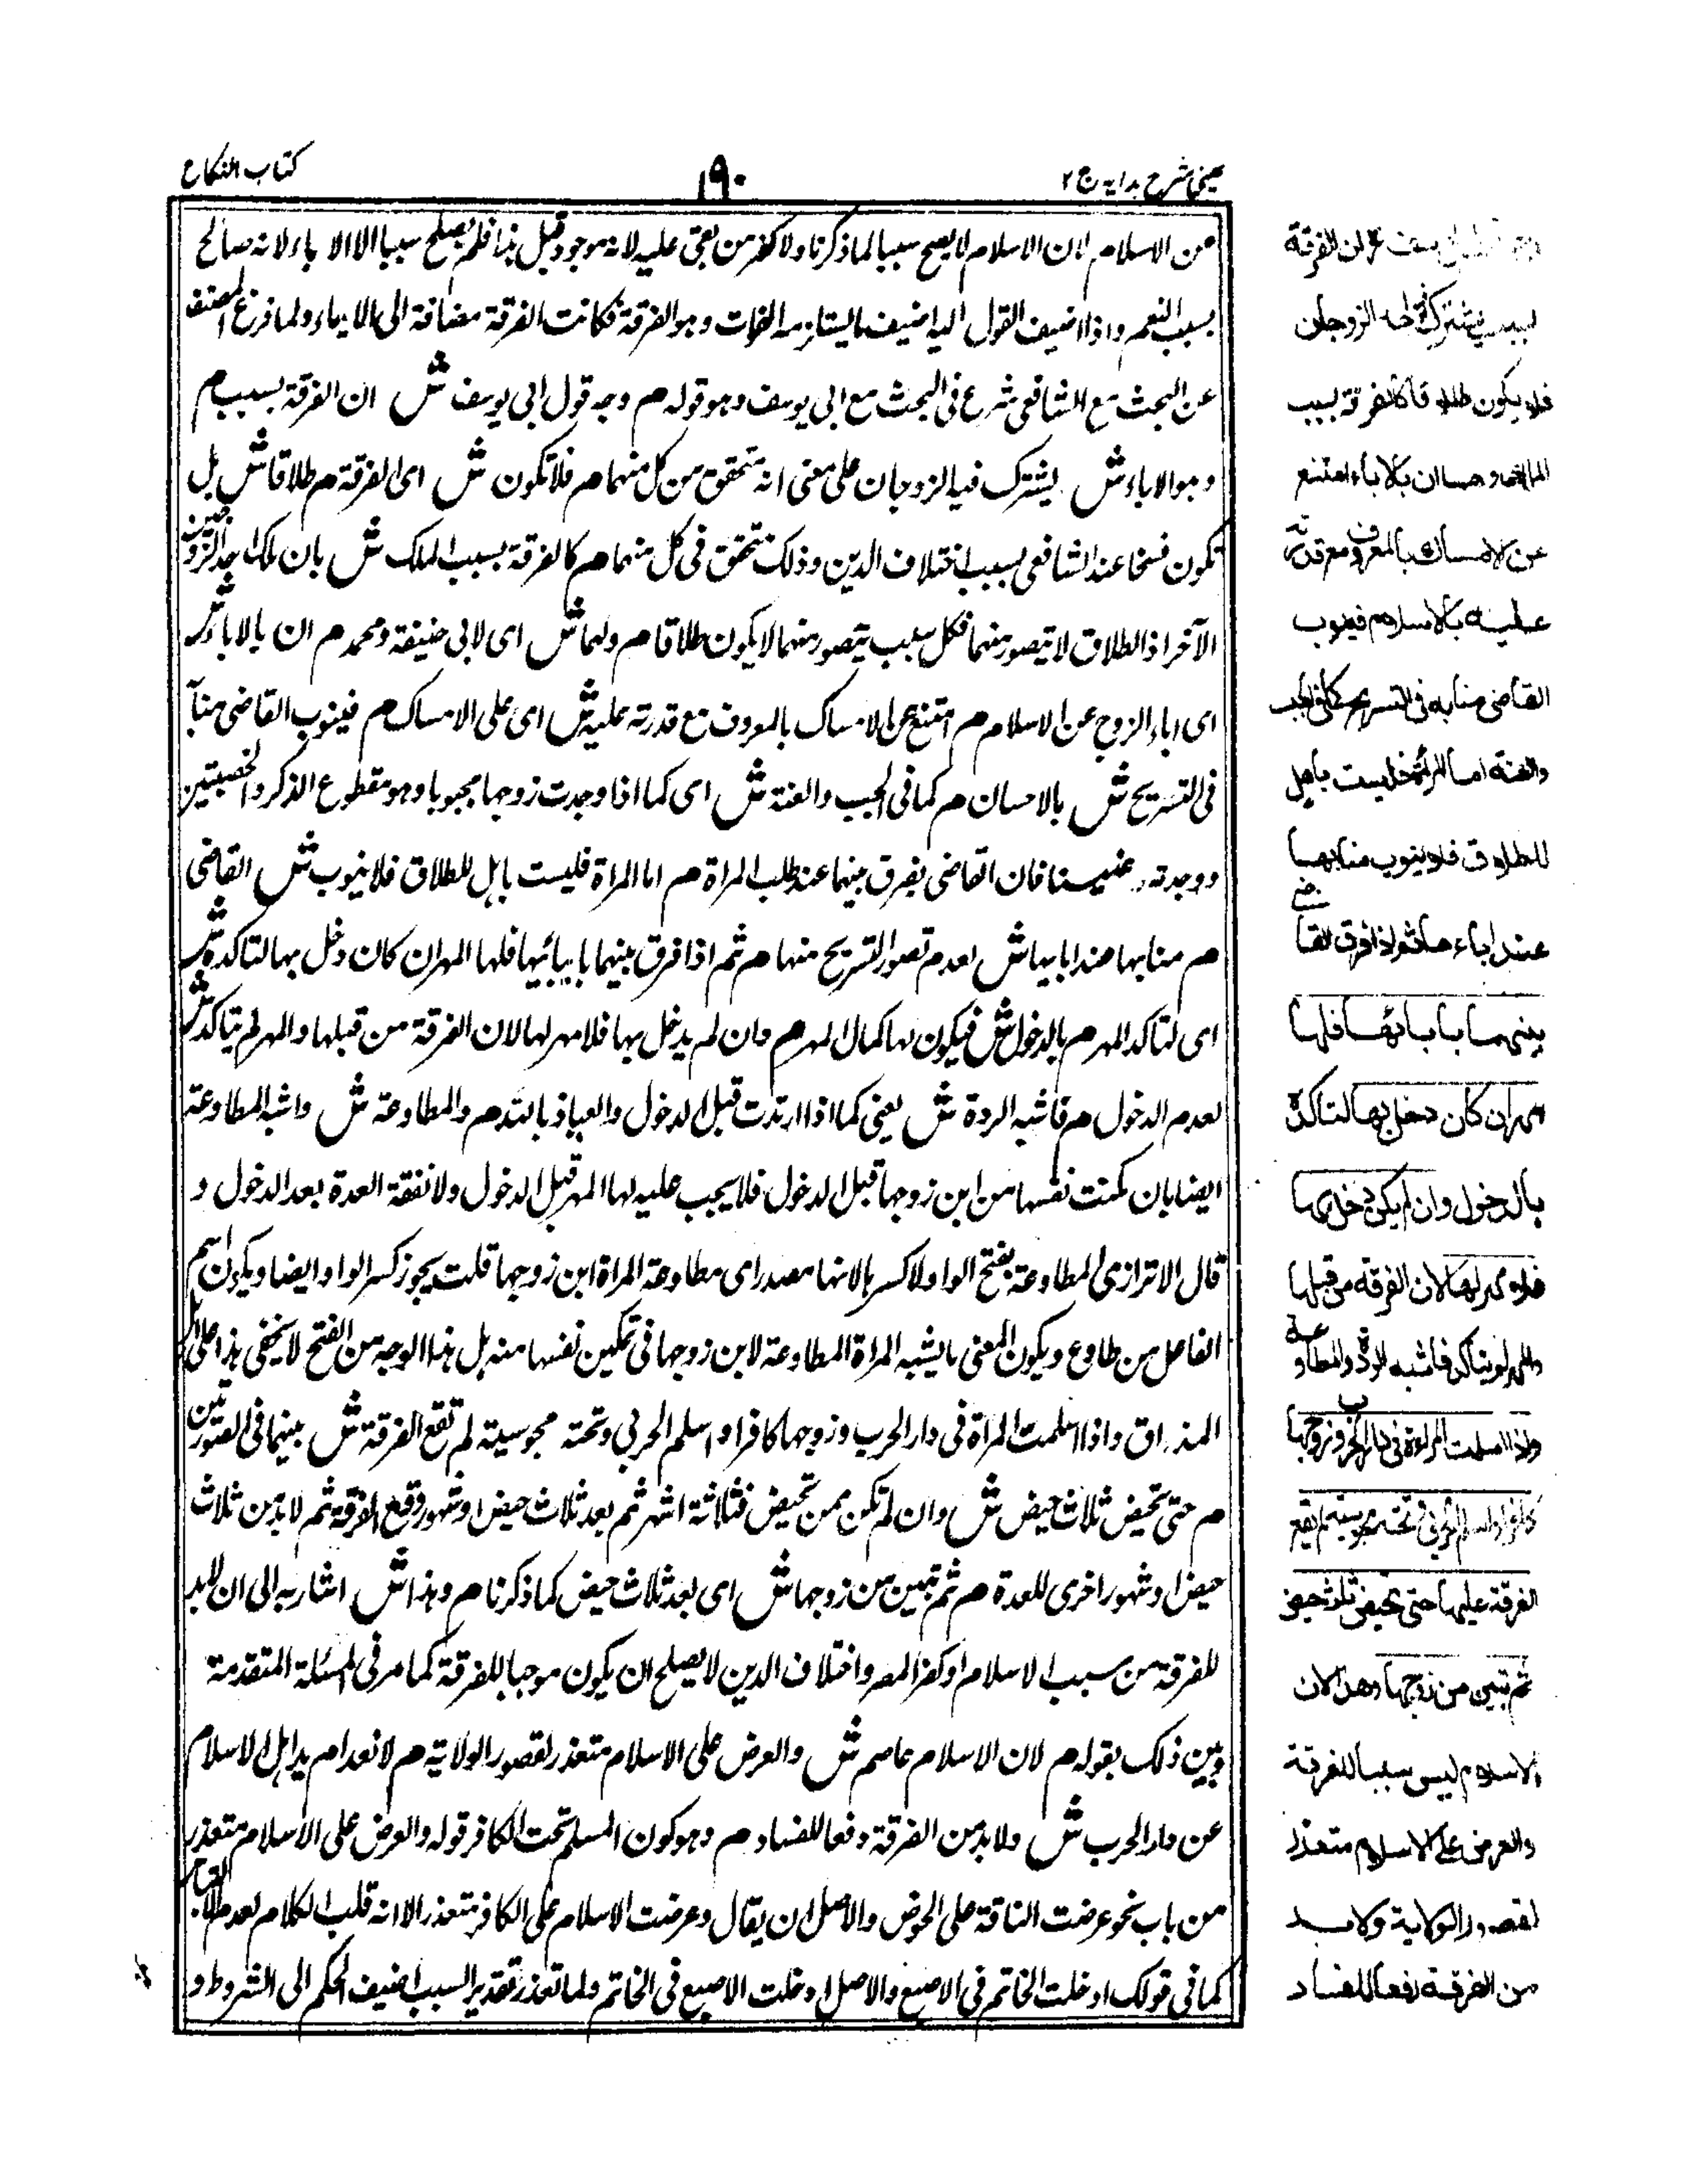 عيني شرح هدايه ج ٢
١٩٠
كتاب النكاح
من الاسلام لان الاسلام لا يصح سببا لما ذكرنا ولا كفر من بقى عليه لانه موجود قبل هذا فلم يصلح سببا الا الاباء لانه صالح
بسبب النعم واذا اضيف القول اليه اضيف ما يستلزمه الفوات وهو الفرقة فكانت الفرقة مضافة الى الاباء ولما فرغ المصنف
عن البحث مع الشافعى شرع فى البحث مع ابى يوسف وهو قوله م وجه قول ابى يوسف ش ان الفرقة بسبب م
وهو الاباء ش يشترك فيه الزوجان على معنى انه متحقق من كل منهما م فلا تكون ش اى الفرقة م طلاقا ش بل
تكون فسخا عند الشافعى بسبب اختلاف الدين وذلك متحقق فى كل منهما م كالفرقة بسبب الملك ش بان ملك احد الزوجين
الآخر اذ الطلاق لا يتصور منهما فكل سبب يتصور منهما لا يكون طلاقا م ولهما ش اى لابى حنيفة ومحمد م ان بالاباء ش
اى اباء الزوج عن الاسلام م امتنع عن الامساك بالمعروف مع قدرته عليه ش اى على الامساك م فينوب القاضى منابه
فى التسريح ش بالاحسان م كما فى الجب والعنة ش اى كما اذا وجدت زوجها مجبوبا وهو مقطوع الذكر والخصيتين
ووجدته عنينا فان القاضى يفرق بينهما عند طلب المراة م اما المراة فليست باهل للطلاق فلا ينوب ش القاضى
م منابها عند ابايها ش لعدم تصور التسريح منها م ثم اذا فرق بينهما بابائها فلها المهر ان كان دخل بها لتاكده ش
اى لتاكد المهر م بالدخول ش فيكون لها كمال المهر م وان لم يدخل بها فلا مهر لها لان الفرقة من قبلها والمهر لم يتاكد ش
لعدم الدخول م فاشبه الردة ش يعنى كما اذا ارتدت قبل الدخول والعياذ بالله م والمطاوعة ش واشبه المطاوعة
ايضا بان مكنت نفسها من ابن زوجها قبل الدخول فلا يجب عليه لها المهر قبل الدخول ولا نفقة العدة بعد الدخول و
قال الاترازى المطاوعة بفتح الواو لا كسرها لانها مصدر اى مطاوعة المراة ابن زوجها قلت يجوز كسر الواو ايضا ويكون اسم
الفاعل من طاوع ويكون المعنى ما يشبه المراة المطاوعة لابن زوجها فى تمكين نفسها منه بل هذا الوجه من الفتح لا يخفى هذا على اهل
المذاق واذا اسلمت المراة فى دار الحرب وزوجها كافر او اسلم الحربي وتحته مجوسية لم تقع الفرقة ش بينهما فى الصورتين
م حتى تحيض ثلاث حيض ش وان لم تكن ممن تحيض فثلاثة اشهر ثم بعد ثلاث حيض او شهور وقع الفرقة ثم لا بد من ثلاث
حيض او شهور اخرى للعدة م ثم تبين من زوجها ش اى بعد ثلاث حيض كما ذكرنا م وهذا ش اشار به الى ان لابد
للفرقة من سبب الاسلام او كفر المصر واختلاف الدين لا يصلح ان يكون موجبا للفرقة كما مر فى المسئلة المتقدمة
وبين ذلك بقوله م لان الاسلام عاصم ش والعرض على الاسلام متعذر لقصور الولاية م لانعدام يد اهل الاسلام
عن دار الحرب ش ولا بد من الفرقة دفعا للفساد م وهو كون المسلم تحت الكافر قوله والعرض على الاسلام متعذر
من باب نحو عرضت الناقة على الحوض والاصل ان يقال وعرضت الاسلام على الكافر متعذر الا انه قلب الكلام لعدم
كما فى قولك ادخلت الخاتم فى الاصبع والاصل ادخلت الاصبع فى الخاتم ولما تعذر تقدير السبب اضيف الحكم الى الشروط و
يوسف ان الفرقة
بسبب يشترك فيه الزوجان
فلا يكون طلاقا كالفرقة بسبب
الملك ولهما ان بالاباء امتنع
عن الامساك بالمعروف مع قدرته
عليه بالاسلام فينوب
القاضى منابه فى التسريح كما فى الجب
والعنة اما المرأة فليست باهل
للطلاق فلا ينوب منابها
عند اباءها ثم اذا فرق القاضى
بينهما بابائها فلها
المهر ان كان دخل بها لتاكده
بالدخول وان لم يكن دخل بها
فلا مهر لها لان الفرقة من قبلها
والمهر لم يتاكد فاشبه الردة والمطاوعة
واذا اسلمت المرأة فى دار الحرب وزوجها
كافر او اسلم الحربى وتحته مجوسية لم تقع
الفرقة عليها حتى تحيض ثلث حيض
ثم تبين من زوجها وهذا لان
الاسلام ليس سببا للفرقة
والعرض على الاسلام متعذر
لقصور الولاية ولا بد
من الفرقة دفعا للفساد